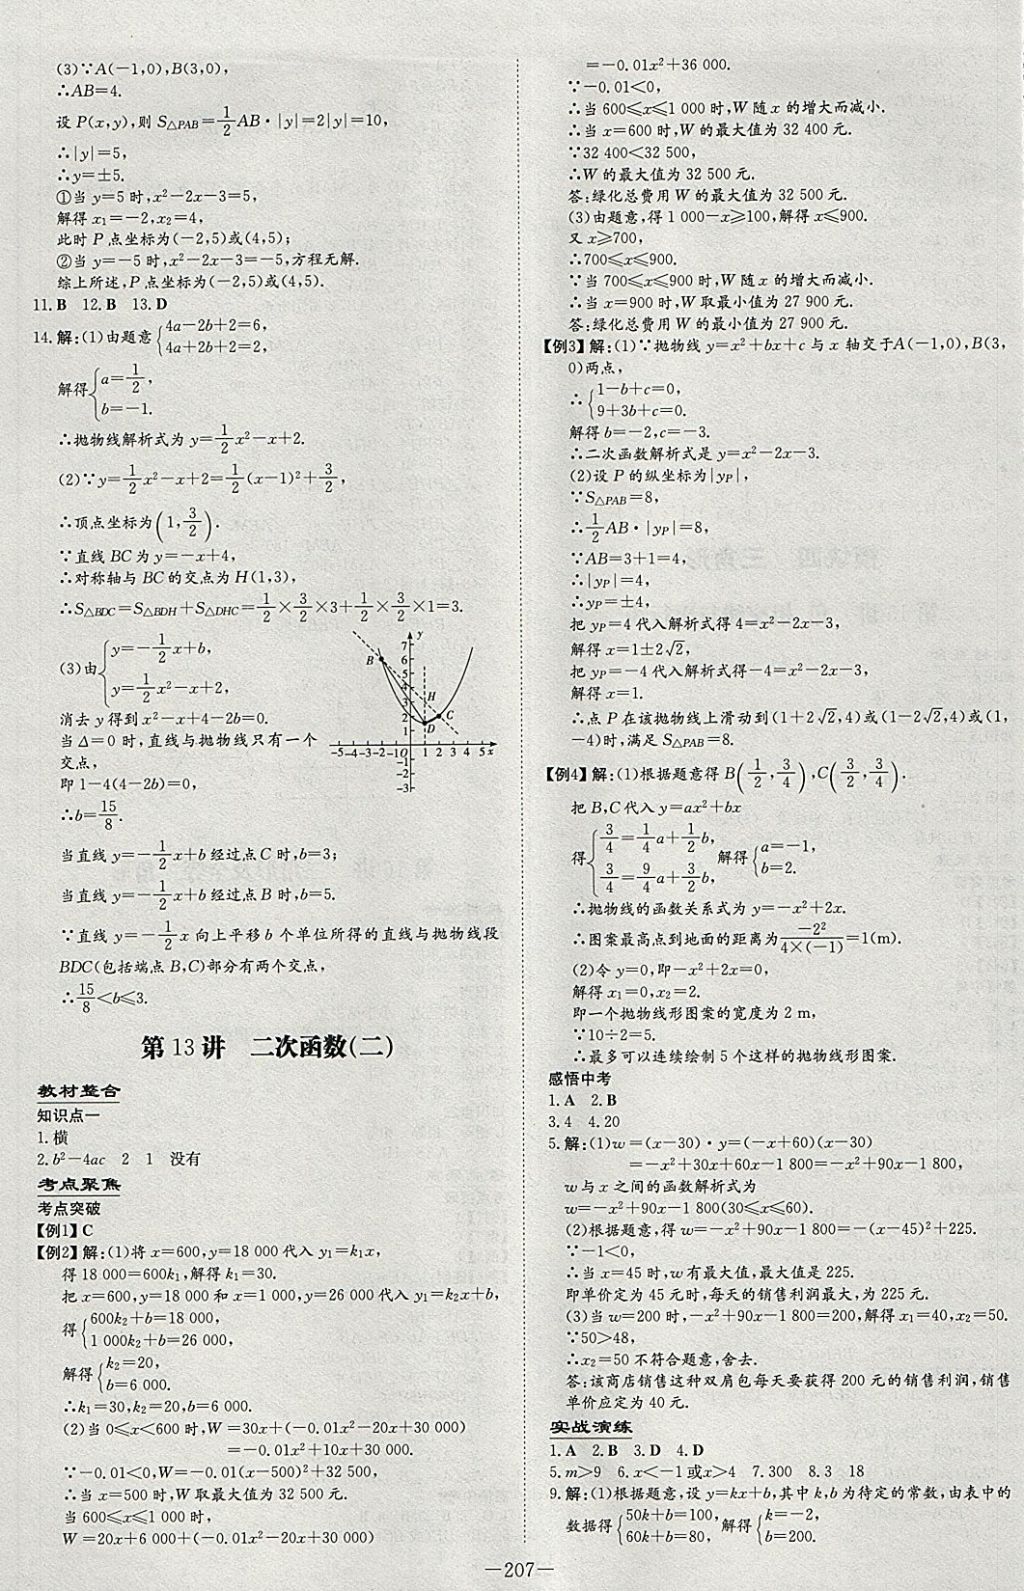 (3)∵A(-1,0),B(3,0),
∴AB=4.
设 P(x,y),则 S△PAB=1/2AB·|y|=2|y|=10,
∴|y|=5,
∴y=±5.
①当 y=5 时,x²-2x-3=5,
解得 x₁=-2,x₂=4,
此时 P 点坐标为(-2,5)或(4,5);
②当 y=-5 时,x²-2x-3=-5,方程无解.
综上所述,P 点坐标为(-2,5)或(4,5).
11.B 12.B 13.D
14.解:(1)由题意{4a-2b+2=6,
4a+2b+2=2,
解得{a=1/2,
b=-1.
∴抛物线解析式为 y=1/2x²-x+2.
(2)∵y=1/2x²-x+2=1/2(x-1)²+3/2,
∴顶点坐标为(1,3/2).
∵直线 BC 为 y=-x+4,
∴对称轴与 BC 的交点为 H(1,3),
∴S△BDC=S△BDH+S△DHC=1/2×3/2×3+1/2×3/2×1=3.
(3)由{y=-1/2x+b,
y=1/2x²-x+2,
消去 y 得到 x²-x+4-2b=0.
当 Δ=0 时,直线与抛物线只有一个
交点,
即 1-4(4-2b)=0,
∴b=15/8.
y
7
6
5
4
3
2
1
B
H
C
D
-5-4-3-2-1O 1 2 3 4 5 x
-1
-2
-3
当直线 y=-1/2x+b 经过点 C 时,b=3;
当直线 y=-1/2x+b 经过点 B 时,b=5.
∵直线 y=-1/2x 向上平移 b 个单位所得的直线与抛物线段
BDC(包括端点 B,C)部分有两个交点,
∴15/8<b≤3.
第 13 讲 二次函数(二)
教材整合
知识点一
1.横
2.b²-4ac 2 1 没有
考点聚焦
考点突破
【例1】C
【例2】解:(1)将 x=600,y=18 000 代入 y₁=k₁x,
得 18 000=600k₁,解得 k₁=30.
把 x=600,y=18 000 和 x=1 000,y=26 000 代入 y₁=k₂x+b,
得{600k₂+b=18 000,
1 000k₂+b=26 000,
解得{k₂=20,
b=6 000.
∴k₁=30,k₂=20,b=6 000.
(2)当 0≤x<600 时,W=30x+(-0.01x²-20x+30 000)
=-0.01x²+10x+30 000.
∵-0.01<0,W=-0.01(x-500)²+32 500,
∴当 x=500 时,W 取最大值为 32 500 元.
当 600≤x≤1 000 时,
W=20x+6 000+(-0.01x²-20x+30 000)
=-0.01x²+36 000.
∵-0.01<0,
∴当 600≤x≤1 000 时,W 随 x 的增大而减小.
∴当 x=600 时,W 的最大值为 32 400 元.
∵32 400<32 500,
∴W 的最大值为 32 500 元.
答:绿化总费用 W 的最大值为 32 500 元.
(3)由题意,得 1 000-x≥100,解得 x≤900.
又 x≥700,
∴700≤x≤900.
∵当 700≤x≤900 时,W 随 x 的增大而减小.
∴当 x=900 时,W 取最小值为 27 900 元.
答:绿化总费用 W 的最小值为 27 900 元.
【例3】解:(1)∵抛物线 y=x²+bx+c 与 x 轴交于A(-1,0),B(3,
0)两点,
∴{1-b+c=0,
9+3b+c=0.
解得 b=-2,c=-3.
∴二次函数解析式是 y=x²-2x-3.
(2)设 P 的纵坐标为|yP|,
∵S△PAB=8,
∴1/2AB·|yP|=8,
∵AB=3+1=4,
∴|yP|=4,
∴yP=±4,
把 yP=4 代入解析式得 4=x²-2x-3,
解得 x=1±2√2,
把 yP=-4 代入解析式得-4=x²-2x-3,
解得 x=1.
∴点 P 在该抛物线上滑动到(1+2√2,4)或(1-2√2,4)或(1,
-4)时,满足 S△PAB=8.
【例4】解:(1)根据题意得 B(1/2,3/4),C(3/2,3/4).
把 B,C 代入 y=ax²+bx
得{3/4=1/4a+1/2b,
3/4=9/4a+3/2b,解得{a=-1,
b=2.
∴抛物线的函数关系式为 y=-x²+2x.
∴图案最高点到地面的距离为-2²/4×(-1)=1(m).
(2)令 y=0,即-x²+2x=0,
解得 x₁=0,x₂=2.
即一个抛物线形图案的宽度为 2 m,
∵10÷2=5.
∴最多可以连续绘制 5 个这样的抛物线形图案.
感悟中考
1.A 2.B
3.4 4.20
5.解:(1)w=(x-30)·y=(-x+60)(x-30)
=-x²+30x+60x-1 800=-x²+90x-1 800,
w 与 x 之间的函数解析式为
w=-x²+90x-1 800(30≤x≤60).
(2)根据题意,得 w=-x²+90x-1 800=-(x-45)²+225.
∵-1<0,
∴当 x=45 时,w 有最大值,最大值是 225.
即单价定为 45 元时,每天的销售利润最大,为 225 元.
(3)当 w=200 时,-x²+90x-1 800=200,解得 x₁=40,x₂=50.
∵50>48,
∴x₂=50 不符合题意,舍去.
答:该商店销售这种双肩包每天要获得 200 元的销售利润,销售
单价应定为 40 元.
实战演练
1.A 2.B 3.D 4.D
5.m>9 6.x<-1 或x>4 7.300 8.3 18
9.解:(1)根据题意,设 y=kx+b,其中 k,b 为待定的常数,由表中的
数据得{50k+b=100,
60k+b=80,解得{k=-2,
b=200.
—207—